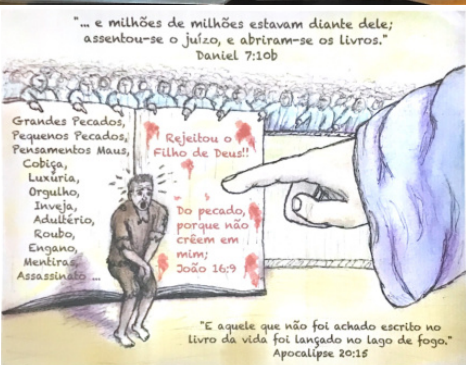 "... e milhões de milhões estavam diante dele;
assentou-se o juízo, e abriram-se os livros."
Daniel 7:10b
Grandes Pecados,
Pequenos Pecados,
Pensamentos Maus,
Cobiça,
Luxuria,
Orgulho,
Inveja,
Adultério,
Roubo,
Engano,
Mentiras,
Assassinato ...
Rejeitou o
Filho de Deus!!
Do pecado,
porque não
crêem em
mim;
João 16:9
"E aquele que não foi achado escrito no
livro da vida foi lançado no lago de fogo."
Apocalipse 20:15